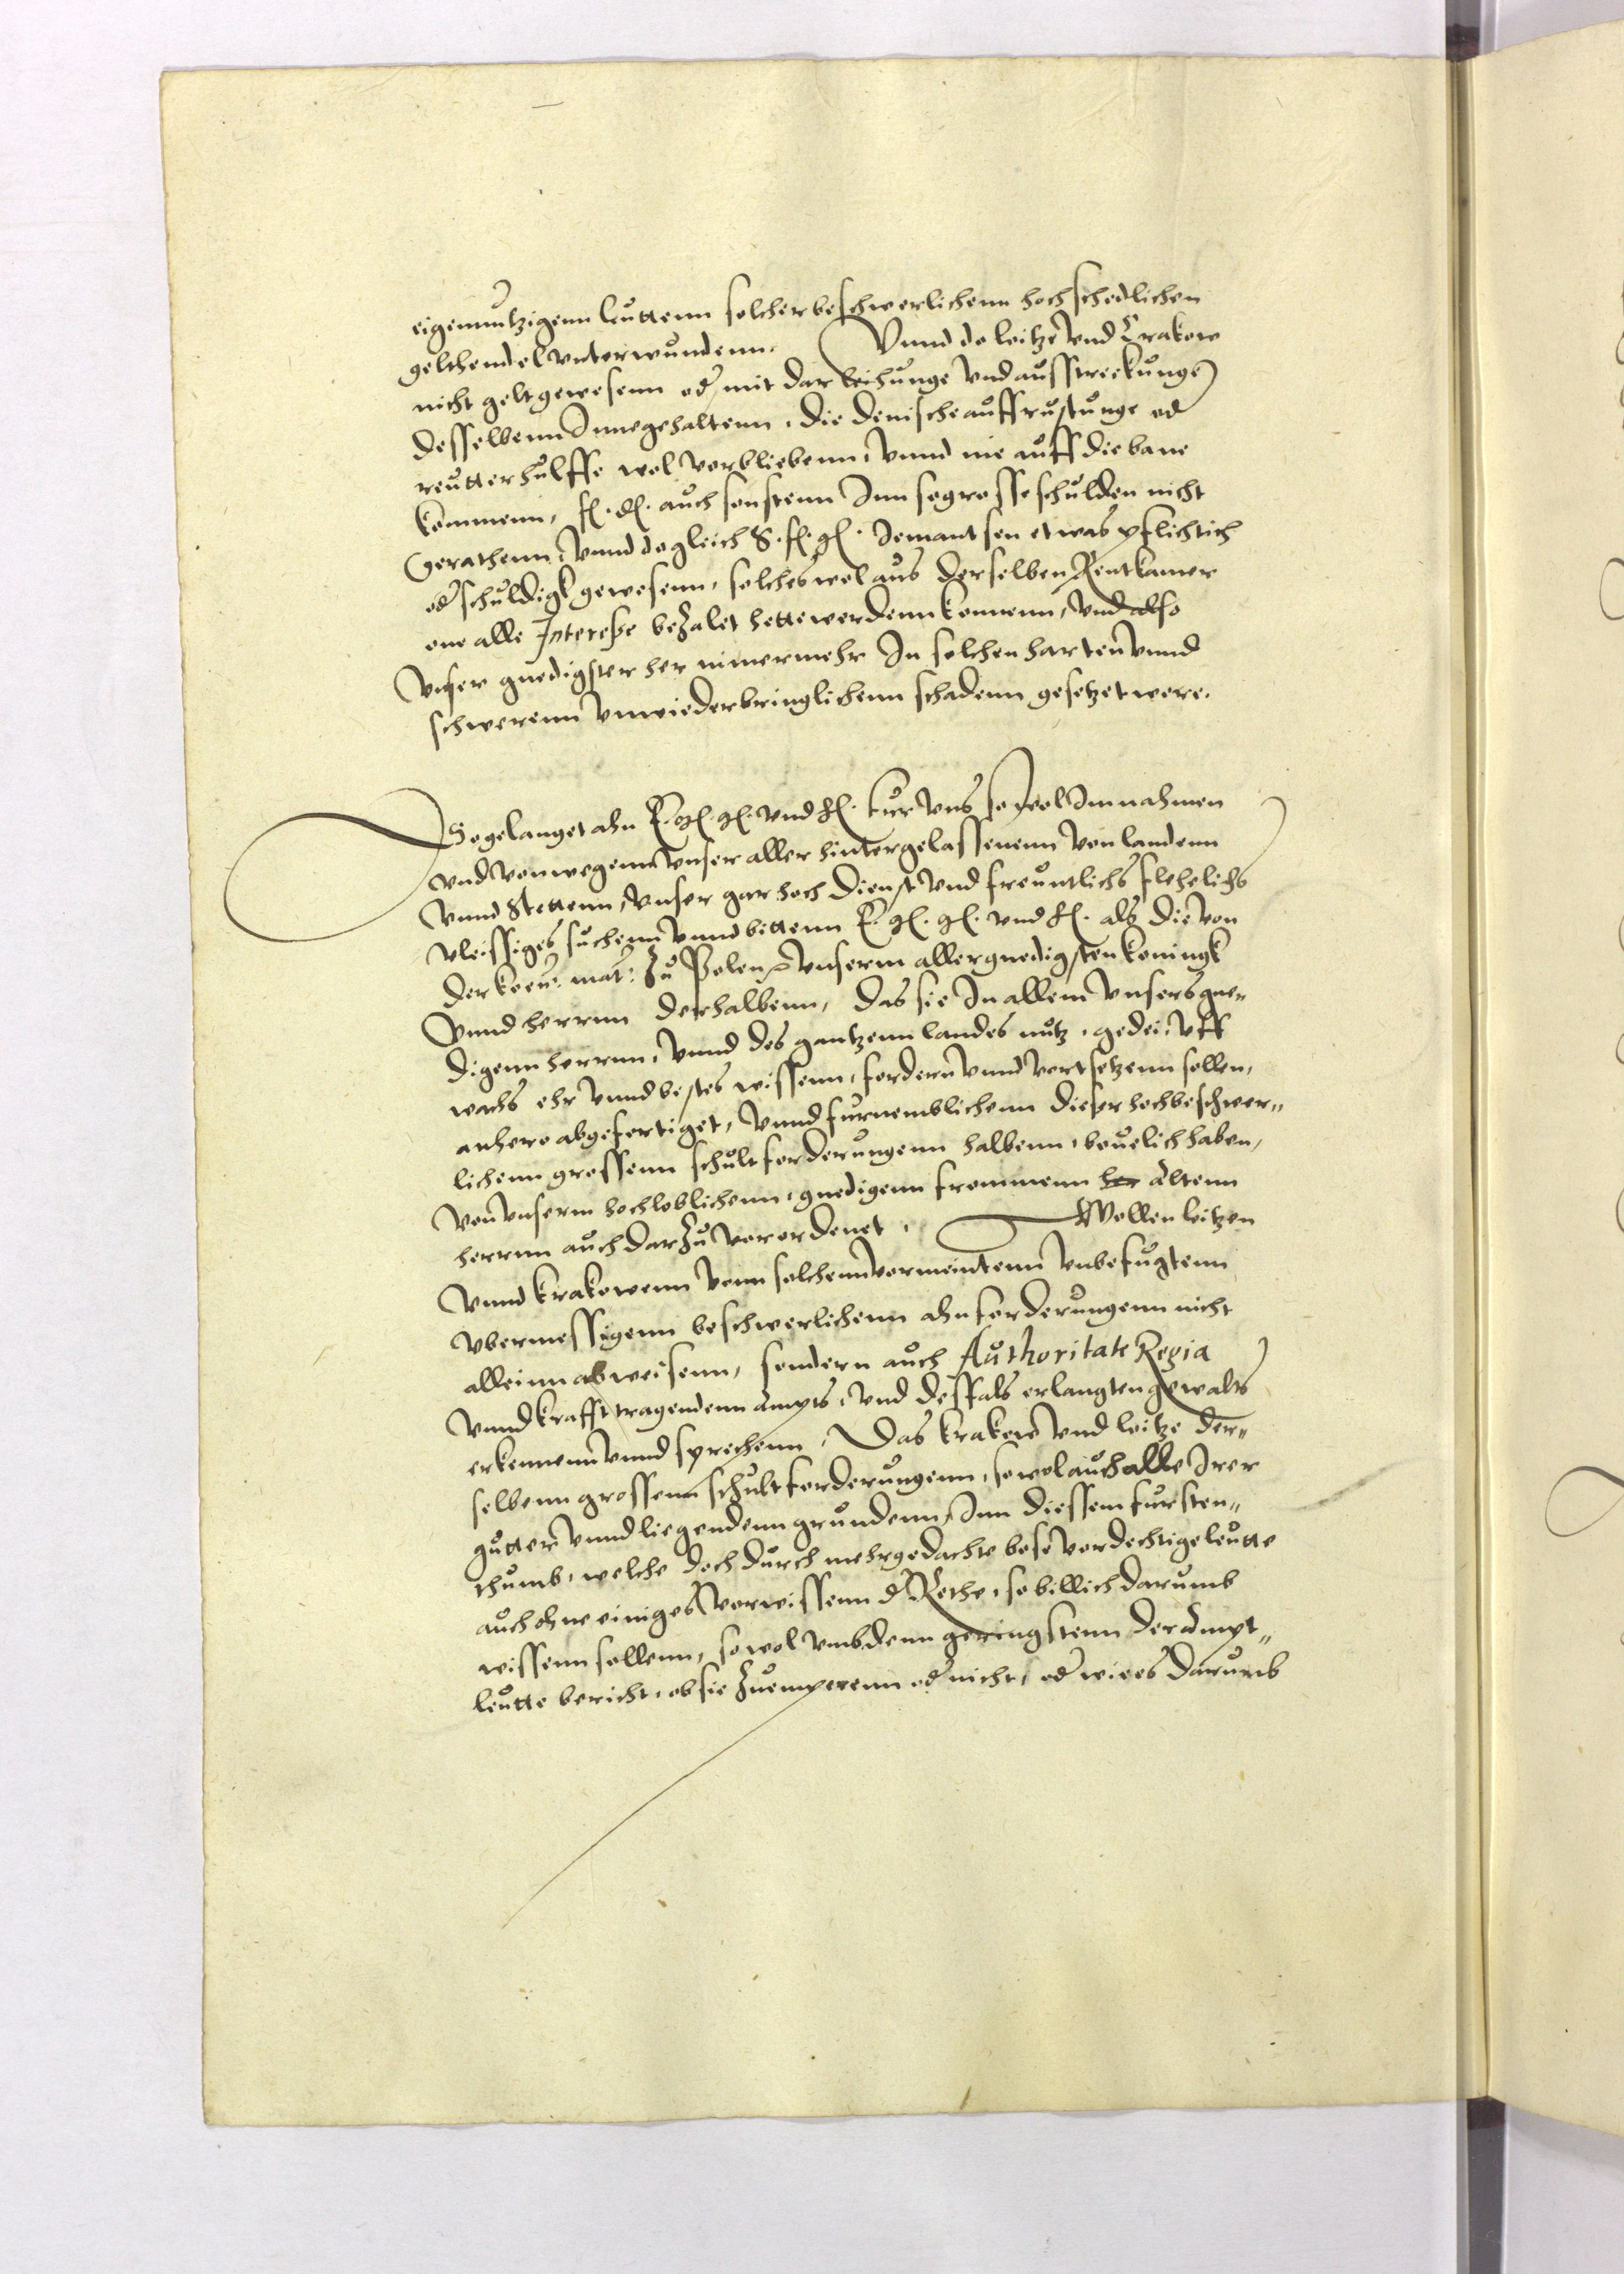 eigennutzigenn leuttenn solcher beschwerlichenn hochschedlichen
gelthendel unterwundenn. Vnnd do leitze vnd Crakow
nicht gelt gewesenn od mit dar leihunge vnd ausstreckunge
desselbenn Innegehaltenn, die denische auffrustunge od
reutterhulffe wol verbliebenn, vnnd nie auff die bane
kommenn, f. d. auch sonstenn Inn so grosse schulden nicht
gerathenn, vnnd do gleich S. f. g. Jemantsen etwas pflichtich
od schuldigk gewesenn, solches wol aus derselben Rentkamer
one alle Interesse bezalet hette werdenn konnenn, vnd also
vnser gnedigster her nimermehr In solchen harten vnnd
schwerenn vnwiederbringlichenn schadenn gesetzet were.
So gelanget ahn E. g. g. vnd f. fur vns so wol Im nahmen
vnd vonwegenn vnser aller hintergelassenenn von landenn
vnnd Stettenn, vnser gar hoch dienst vnd freuntlichs flehelichs
vleissiges suchenn vnnd bittenn E. g. g. vnd f. als die von
der koen: mat: zu Polen vnserm allergnedigsten koningk
vnnd herrnn derhalbenn, das sie In allem vnsers gne¬
digenn herrnn, vnnd des gantzenn landes nutz, gedei, vff
wachs ehr vnnd bestes wissenn, fordern vnnd vortsetzenn sollen,
anhero abgefertiget, vnnd furnemblichenn dieser hochbeschwer¬
lichenn grossenn schultforderungenn halbenn, beuelich haben,
von vnserm hochloblichenn, gnedigenn frommenn her altenn
herrnn auch darzu verordenet. Wollen leitzen
vnnd krakowenn vonn solchenn vermeintenn vnbefugtenn
vbermessigenn beschwerlichenn ahnforderungenn nicht
alleinn abweisenn, sondern auch Authoritate Regia
vnnd krafft tragendenn ampts, vnd desfals erlangten gewalts
erkennenn vnnd sprechenn, Das krakow vnd leitze der¬
selbenn grossenn schultforderungenn, so wol auch alle Irer
gutter vnnd liegendenn grundenn, Inn diessem fursten¬
thumb, welche doch durch mehrgedachte bose verdechtige leutte
auch ohne einiges vorwissenn d Rethe, so billich darumb
wissenn sollenn, so wol vmb denn geringstenn der Ampt¬
leutte bericht, ob sie zuemperenn od nicht, od wie es darumb